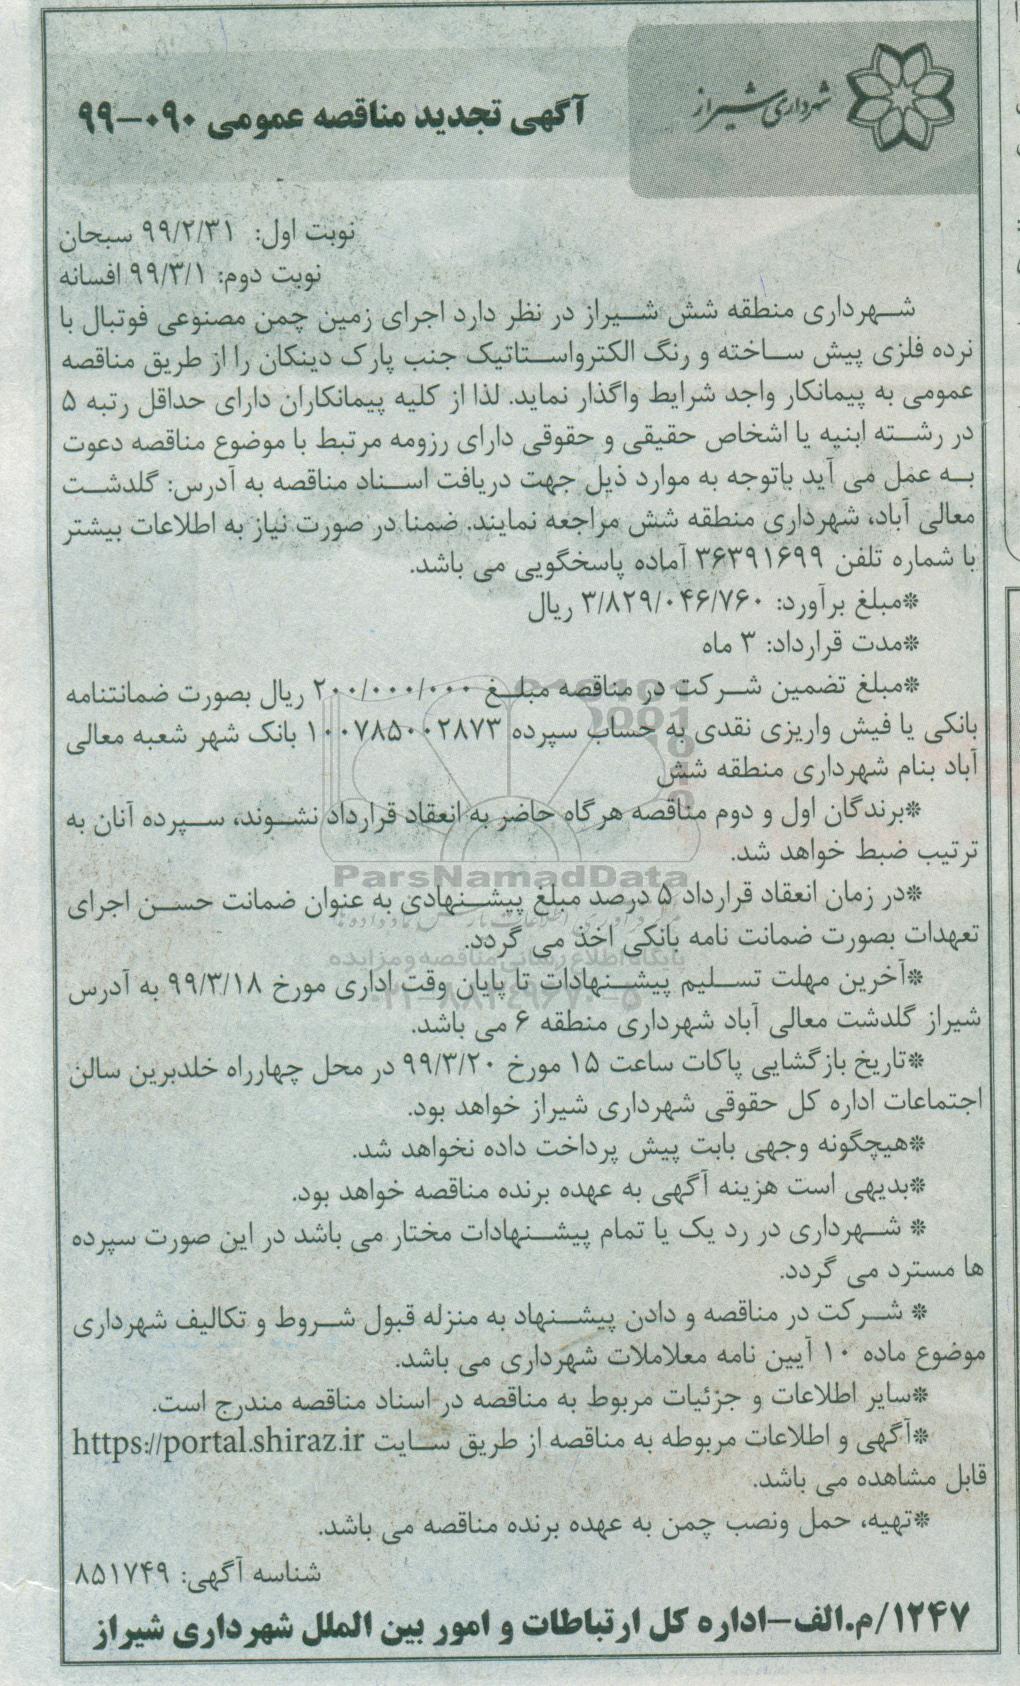 شهرداری شیراز
آگهی تجدید مناقصه عمومی ۰۹۰-۹۹
نوبت اول: ۹۹/۲/۳۱ سبحان
نوبت دوم: ۹۹/۳/۱ افسانه
شهرداری منطقه شش شیراز در نظر دارد اجرای زمین چمن مصنوعی فوتبال با
نرده فلزی پیش ساخته و رنگ الکترواستاتیک جنب پارک دینکان را از طریق مناقصه
عمومی به پیمانکار واجد شرایط واگذار نماید. لذا از کلیه پیمانکاران دارای حداقل رتبه ۵
در رشته ابنیه یا اشخاص حقیقی و حقوقی دارای رزومه مرتبط با موضوع مناقصه دعوت
به عمل می آید باتوجه به موارد ذیل جهت دریافت اسناد مناقصه به آدرس: گلدشت
معالی آباد، شهرداری منطقه شش مراجعه نمایند. ضمنا در صورت نیاز به اطلاعات بیشتر
با شماره تلفن ۳۶۳۹۱۶۹۹ آماده پاسخگویی می باشد.
*مبلغ برآورد: ۳/۸۲۹/۰۴۶/۷۶۰ ریال
*مدت قرارداد: ۳ ماه
*مبلغ تضمین شرکت در مناقصه مبلغ ۲۰۰/۰۰۰/۰۰۰ ریال بصورت ضمانتنامه
بانکی یا فیش واریزی نقدی به حساب سپرده ۱۰۰۷۸۵۰۰۲۸۷۳ بانک شهر شعبه معالی
آباد بنام شهرداری منطقه شش
*برندگان اول و دوم مناقصه هرگاه حاضر به انعقاد قرارداد نشوند، سپرده آنان به
ترتیب ضبط خواهد شد.
ParsNamadData
*در زمان انعقاد قرارداد ۵ درصد مبلغ پیشنهادی به عنوان ضمانت حسن اجرای
تعهدات بصورت ضمانت نامه بانکی اخذ می گردد.
پایگاه اطلاع رسانی مناقصه و مزایده
*آخرین مهلت تسلیم پیشنهادات تا پایان وقت اداری مورخ ۹۹/۳/۱۸ به آدرس
شیراز گلدشت معالی آباد شهرداری منطقه ۶ می باشد.
*تاریخ بازگشایی پاکات ساعت ۱۵ مورخ ۹۹/۳/۲۰ در محل چهارراه خلدبرین سالن
اجتماعات اداره کل حقوقی شهرداری شیراز خواهد بود.
*هیچگونه وجهی بابت پیش پرداخت داده نخواهد شد.
*بدیهی است هزینه آگهی به عهده برنده مناقصه خواهد بود.
* شهرداری در رد یک یا تمام پیشنهادات مختار می باشد در این صورت سپرده
ها مسترد می گردد.
* شرکت در مناقصه و دادن پیشنهاد به منزله قبول شروط و تکالیف شهرداری
موضوع ماده ۱۰ آیین نامه معلاملات شهرداری می باشد.
*سایر اطلاعات و جزئیات مربوط به مناقصه در اسناد مناقصه مندرج است.
*آگهی و اطلاعات مربوطه به مناقصه از طریق سایت https://portal.shiraz.ir
قابل مشاهده می باشد.
*تهیه، حمل ونصب چمن به عهده برنده مناقصه می باشد.
شناسه آگهی: ۸۵۱۷۴۹
۱۲۴۷/م.الف-اداره کل ارتباطات و امور بین الملل شهرداری شیراز